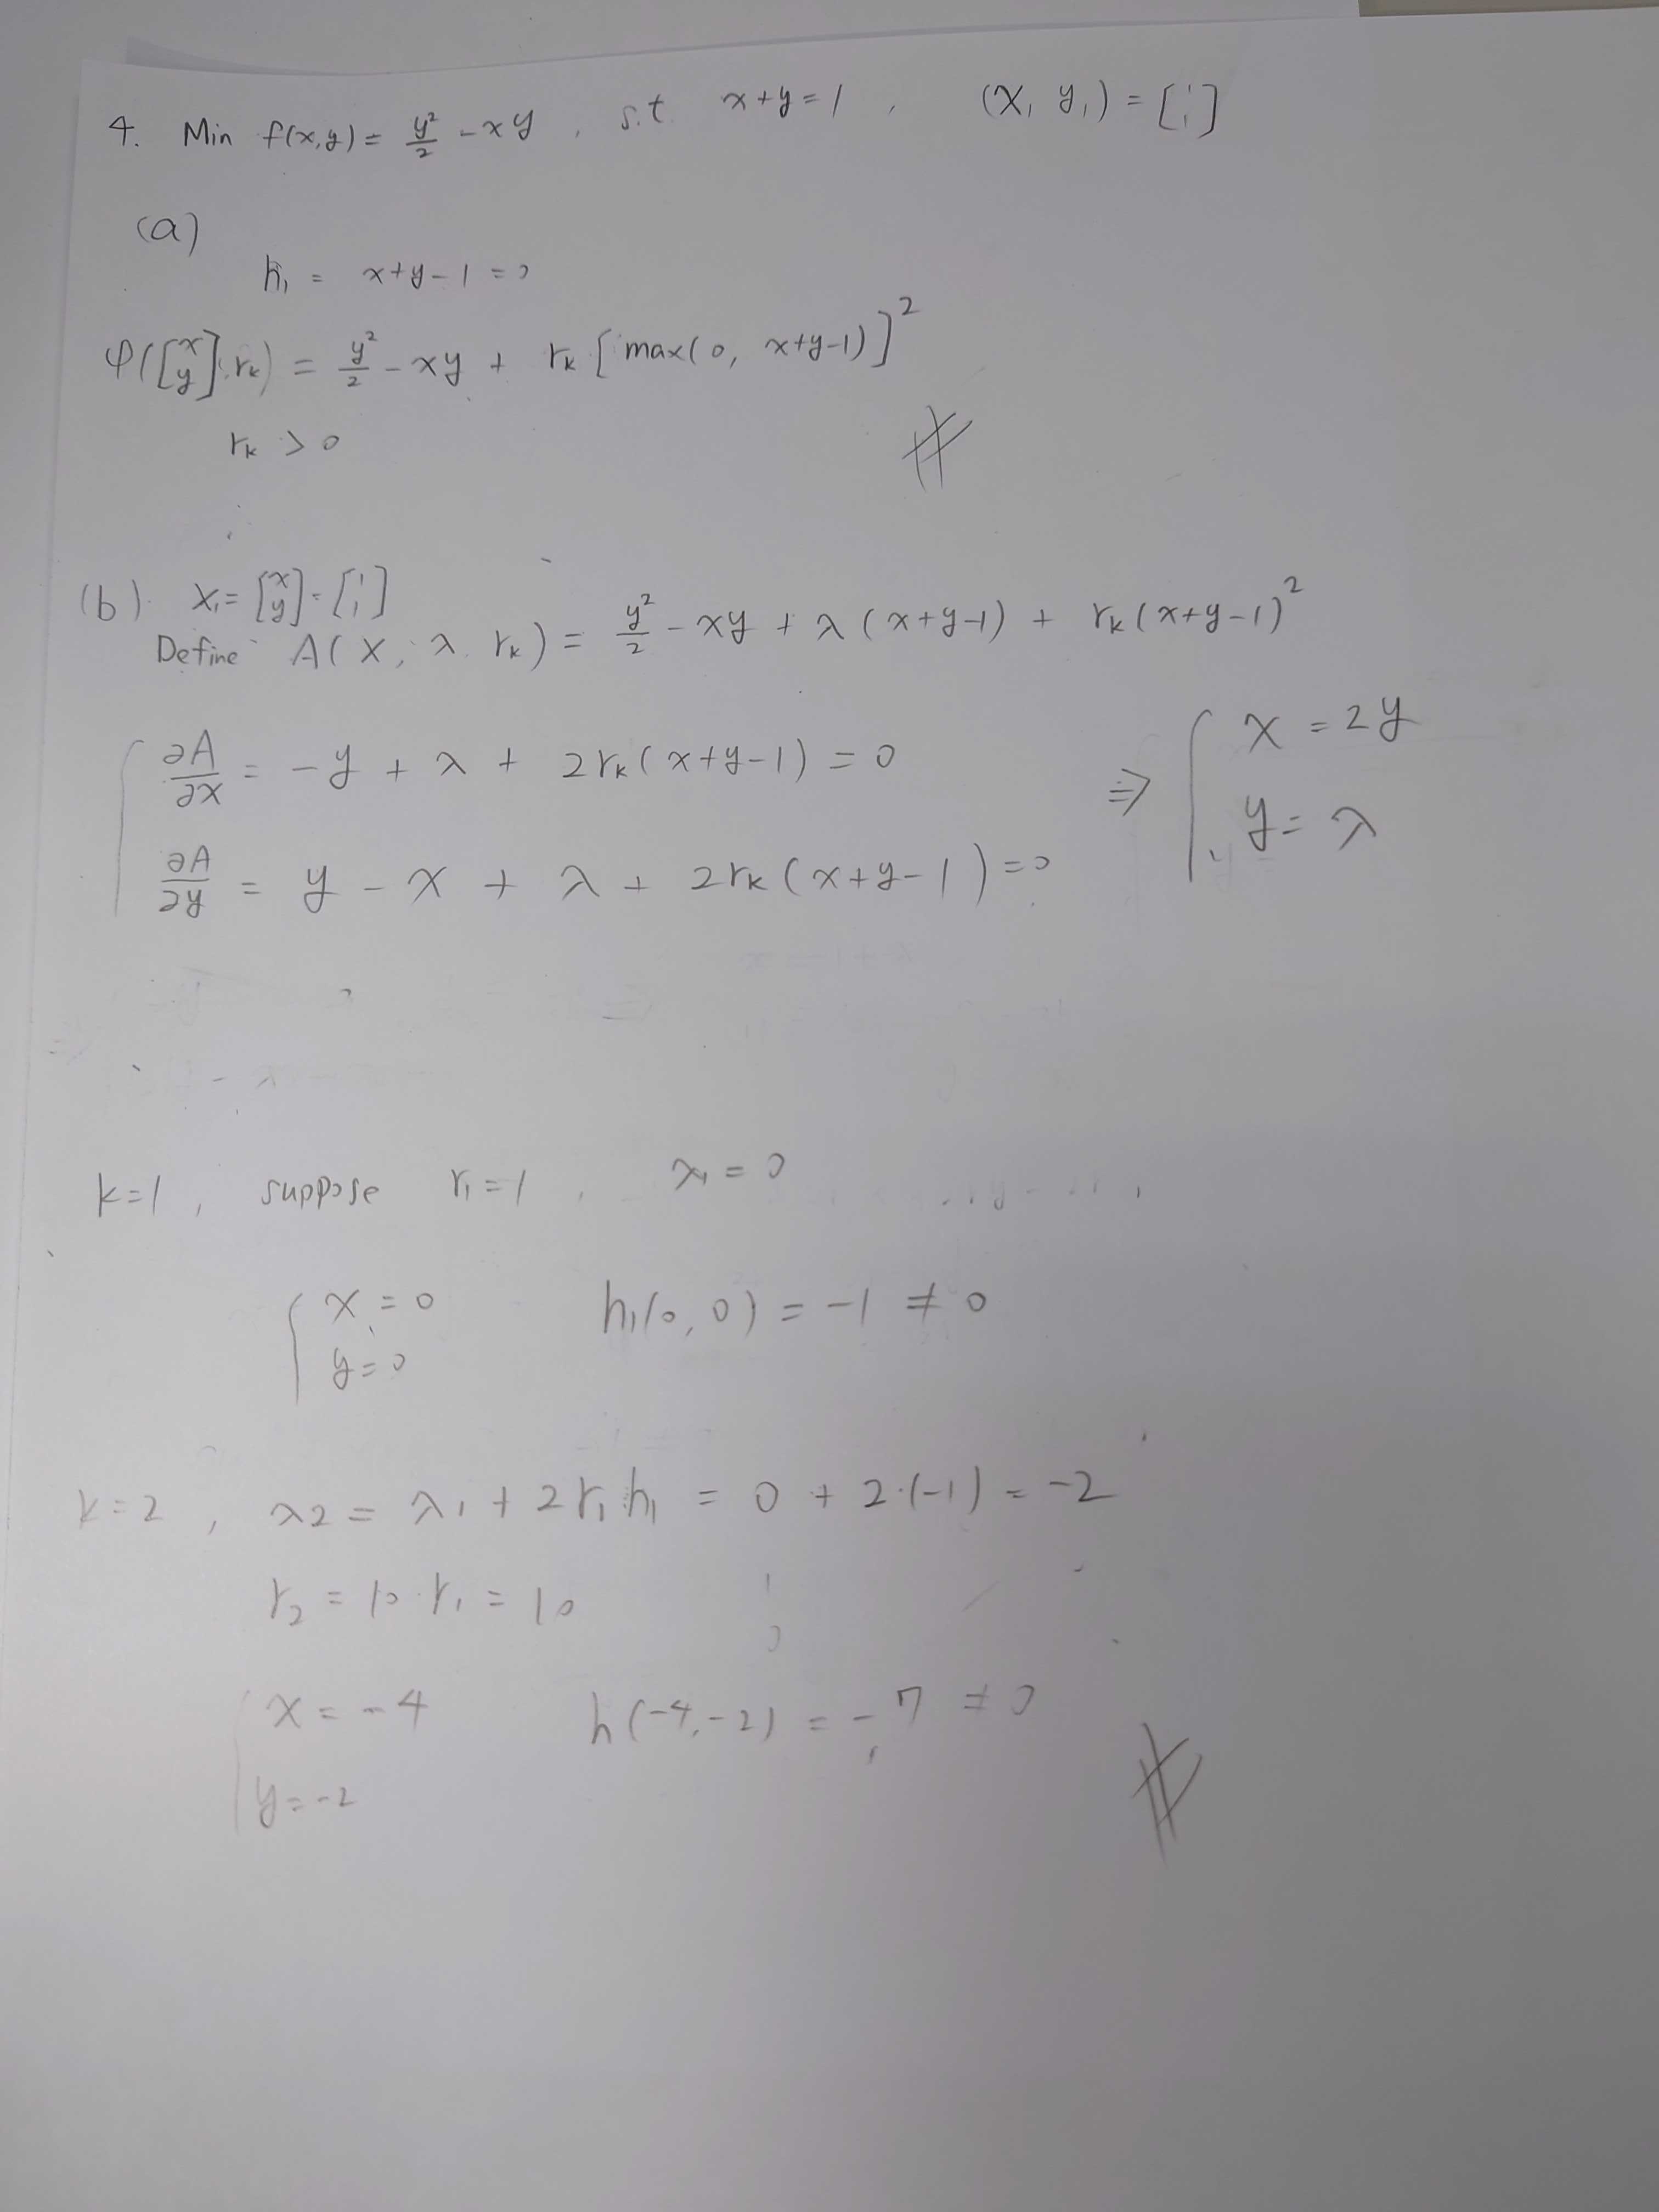 4. Min f(x,y) = y²/2 - xy , s.t. x+y=1 , (x₁ y₁) = [1 1]
(a)
h₁ = x+y-1 = 0
φ([x y], rₖ) = y²/2 - xy + rₖ [max(0, x+y-1)]²
rₖ > 0
(b) X₁ = [x y] = [1 1]
Define A(X, λ, rₖ) = y²/2 - xy + λ(x+y-1) + rₖ(x+y-1)²
∂A/∂x = -y + λ + 2rₖ(x+y-1) = 0 ⇒ x = 2y
∂A/∂y = y - x + λ + 2rₖ(x+y-1) = 0 y = λ
k=1, suppose r₁=1, λ₁=0
x=0 h₁(0,0) = -1 ≠ 0
y=0
k=2, λ2 = λ₁ + 2r₁h₁ = 0 + 2·(-1) = -2
r₂ = 10·r₁ = 10
x = -4 h(-4,-2) = -7 ≠ 0
y=-2